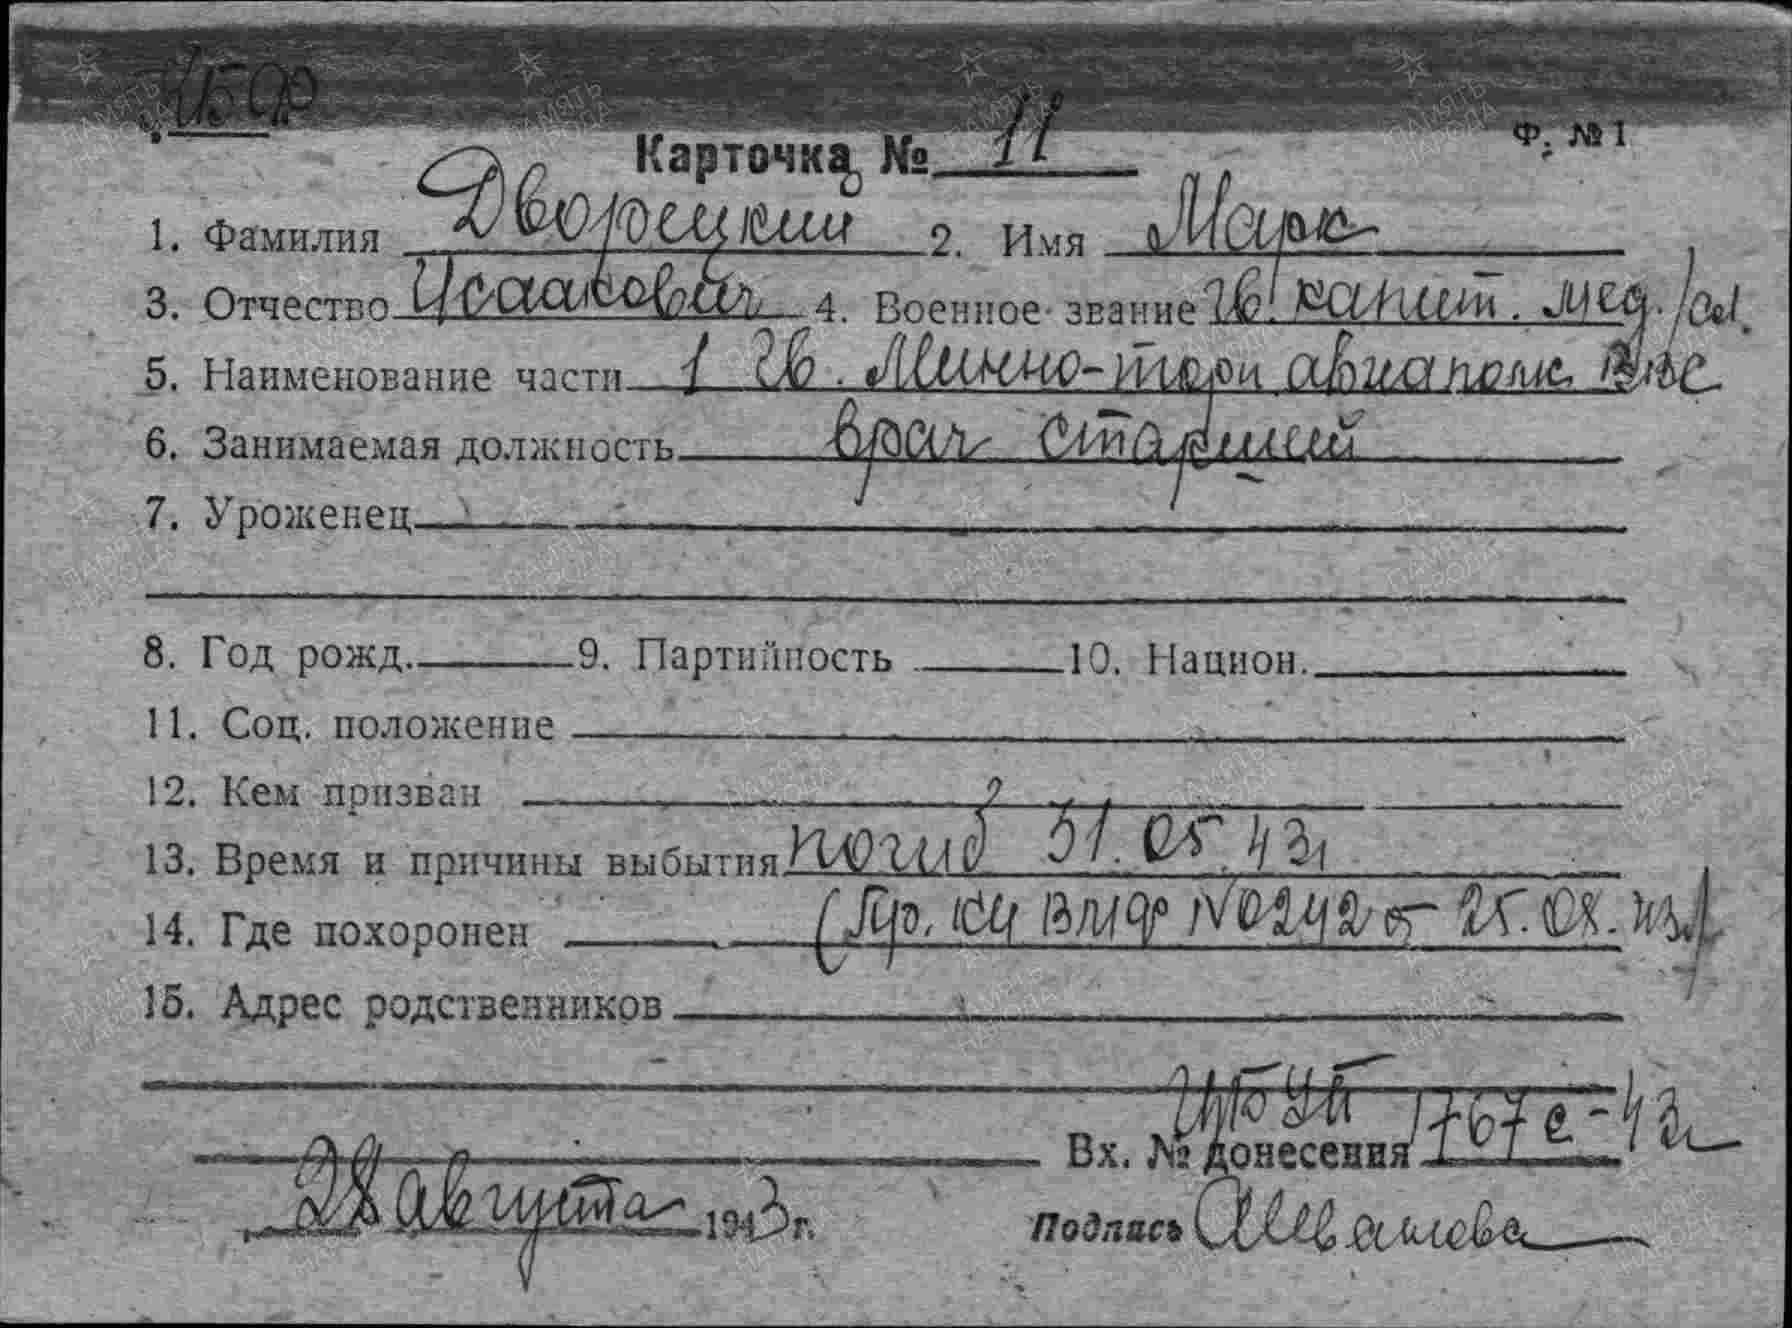 КБФ
Карточка № 11 Ф. № 1
1. Фамилия Дворецкий 2. Имя Марк
3. Отчество Исаакович 4. Военное звание Гв. капит. мед./сл.
5. Наименование части 1 Гв. Минно-торп авиаполк ВВС
6. Занимаемая должность врач старший
7. Уроженец
8. Год рожд. 9. Партийность 10. Национ.
11. Соц. положение
12. Кем призван
13. Время и причины выбытия погиб 31.05.43г
14. Где похоронен (Пр. КУ ВМФ № 0242 от 25.08.43г)
15. Адрес родственников
Вх. № донесения 1767с-43г
28 августа 1943 г. Подпись